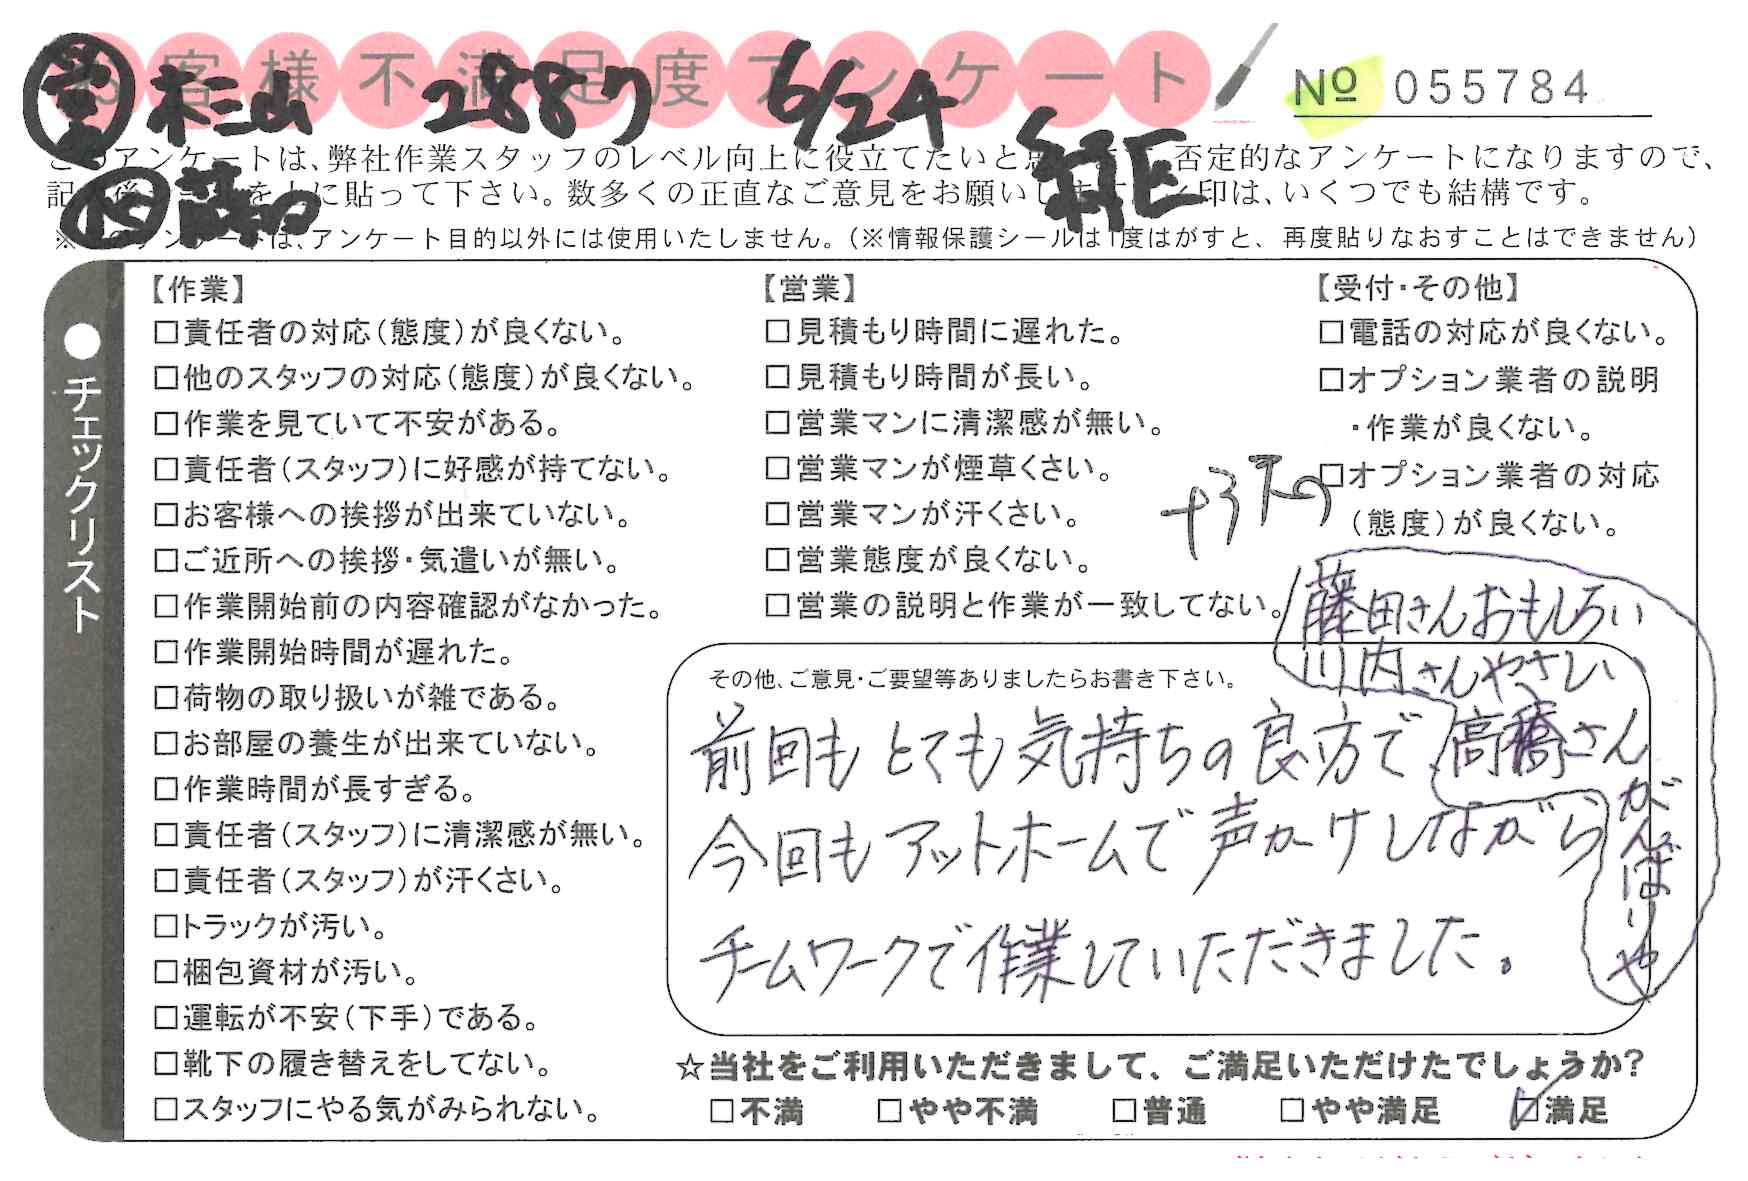 お客様不満足度アンケート
№ 055784
杉山 2887 6/24
このアンケートは、弊社作業スタッフのレベル向上に役立てたいと思 否定的なアンケートになりますので、
記 後 を上に貼って下さい。数多くの正直なご意見をお願いします 印は、いくつでも結構です。
※このアンケートは、アンケート目的以外には使用いたしません。(※情報保護シールは1度はがすと、再度貼りなおすことはできません)
●チェックリスト
【作業】
□責任者の対応(態度)が良くない。
□他のスタッフの対応(態度)が良くない。
□作業を見ていて不安がある。
□責任者(スタッフ)に好感が持てない。
□お客様への挨拶が出来ていない。
□ご近所への挨拶・気遣いが無い。
□作業開始前の内容確認がなかった。
□作業開始時間が遅れた。
□荷物の取り扱いが雑である。
□お部屋の養生が出来ていない。
□作業時間が長すぎる。
□責任者(スタッフ)に清潔感が無い。
□責任者(スタッフ)が汗くさい。
□トラックが汚い。
□梱包資材が汚い。
□運転が不安(下手)である。
□靴下の履き替えをしてない。
□スタッフにやる気がみられない。
【営業】
□見積もり時間に遅れた。
□見積もり時間が長い。
□営業マンに清潔感が無い。
□営業マンが煙草くさい。
□営業マンが汗くさい。
□営業態度が良くない。
□営業の説明と作業が一致してない。
【受付・その他】
□電話の対応が良くない。
□オプション業者の説明
・作業が良くない。
□オプション業者の対応
(態度)が良くない。
藤田さんおもしろい
川内さんやさしい
高橋さん
がんばりや
その他、ご意見・ご要望等ありましたらお書き下さい。
前回もとても気持ちの良方で
今回もアットホームで声かけしながら
チームワークで作業していただきました。
☆当社をご利用いただきまして、ご満足いただけたでしょうか?
□不満 □やや不満 □普通 □やや満足 ☑満足